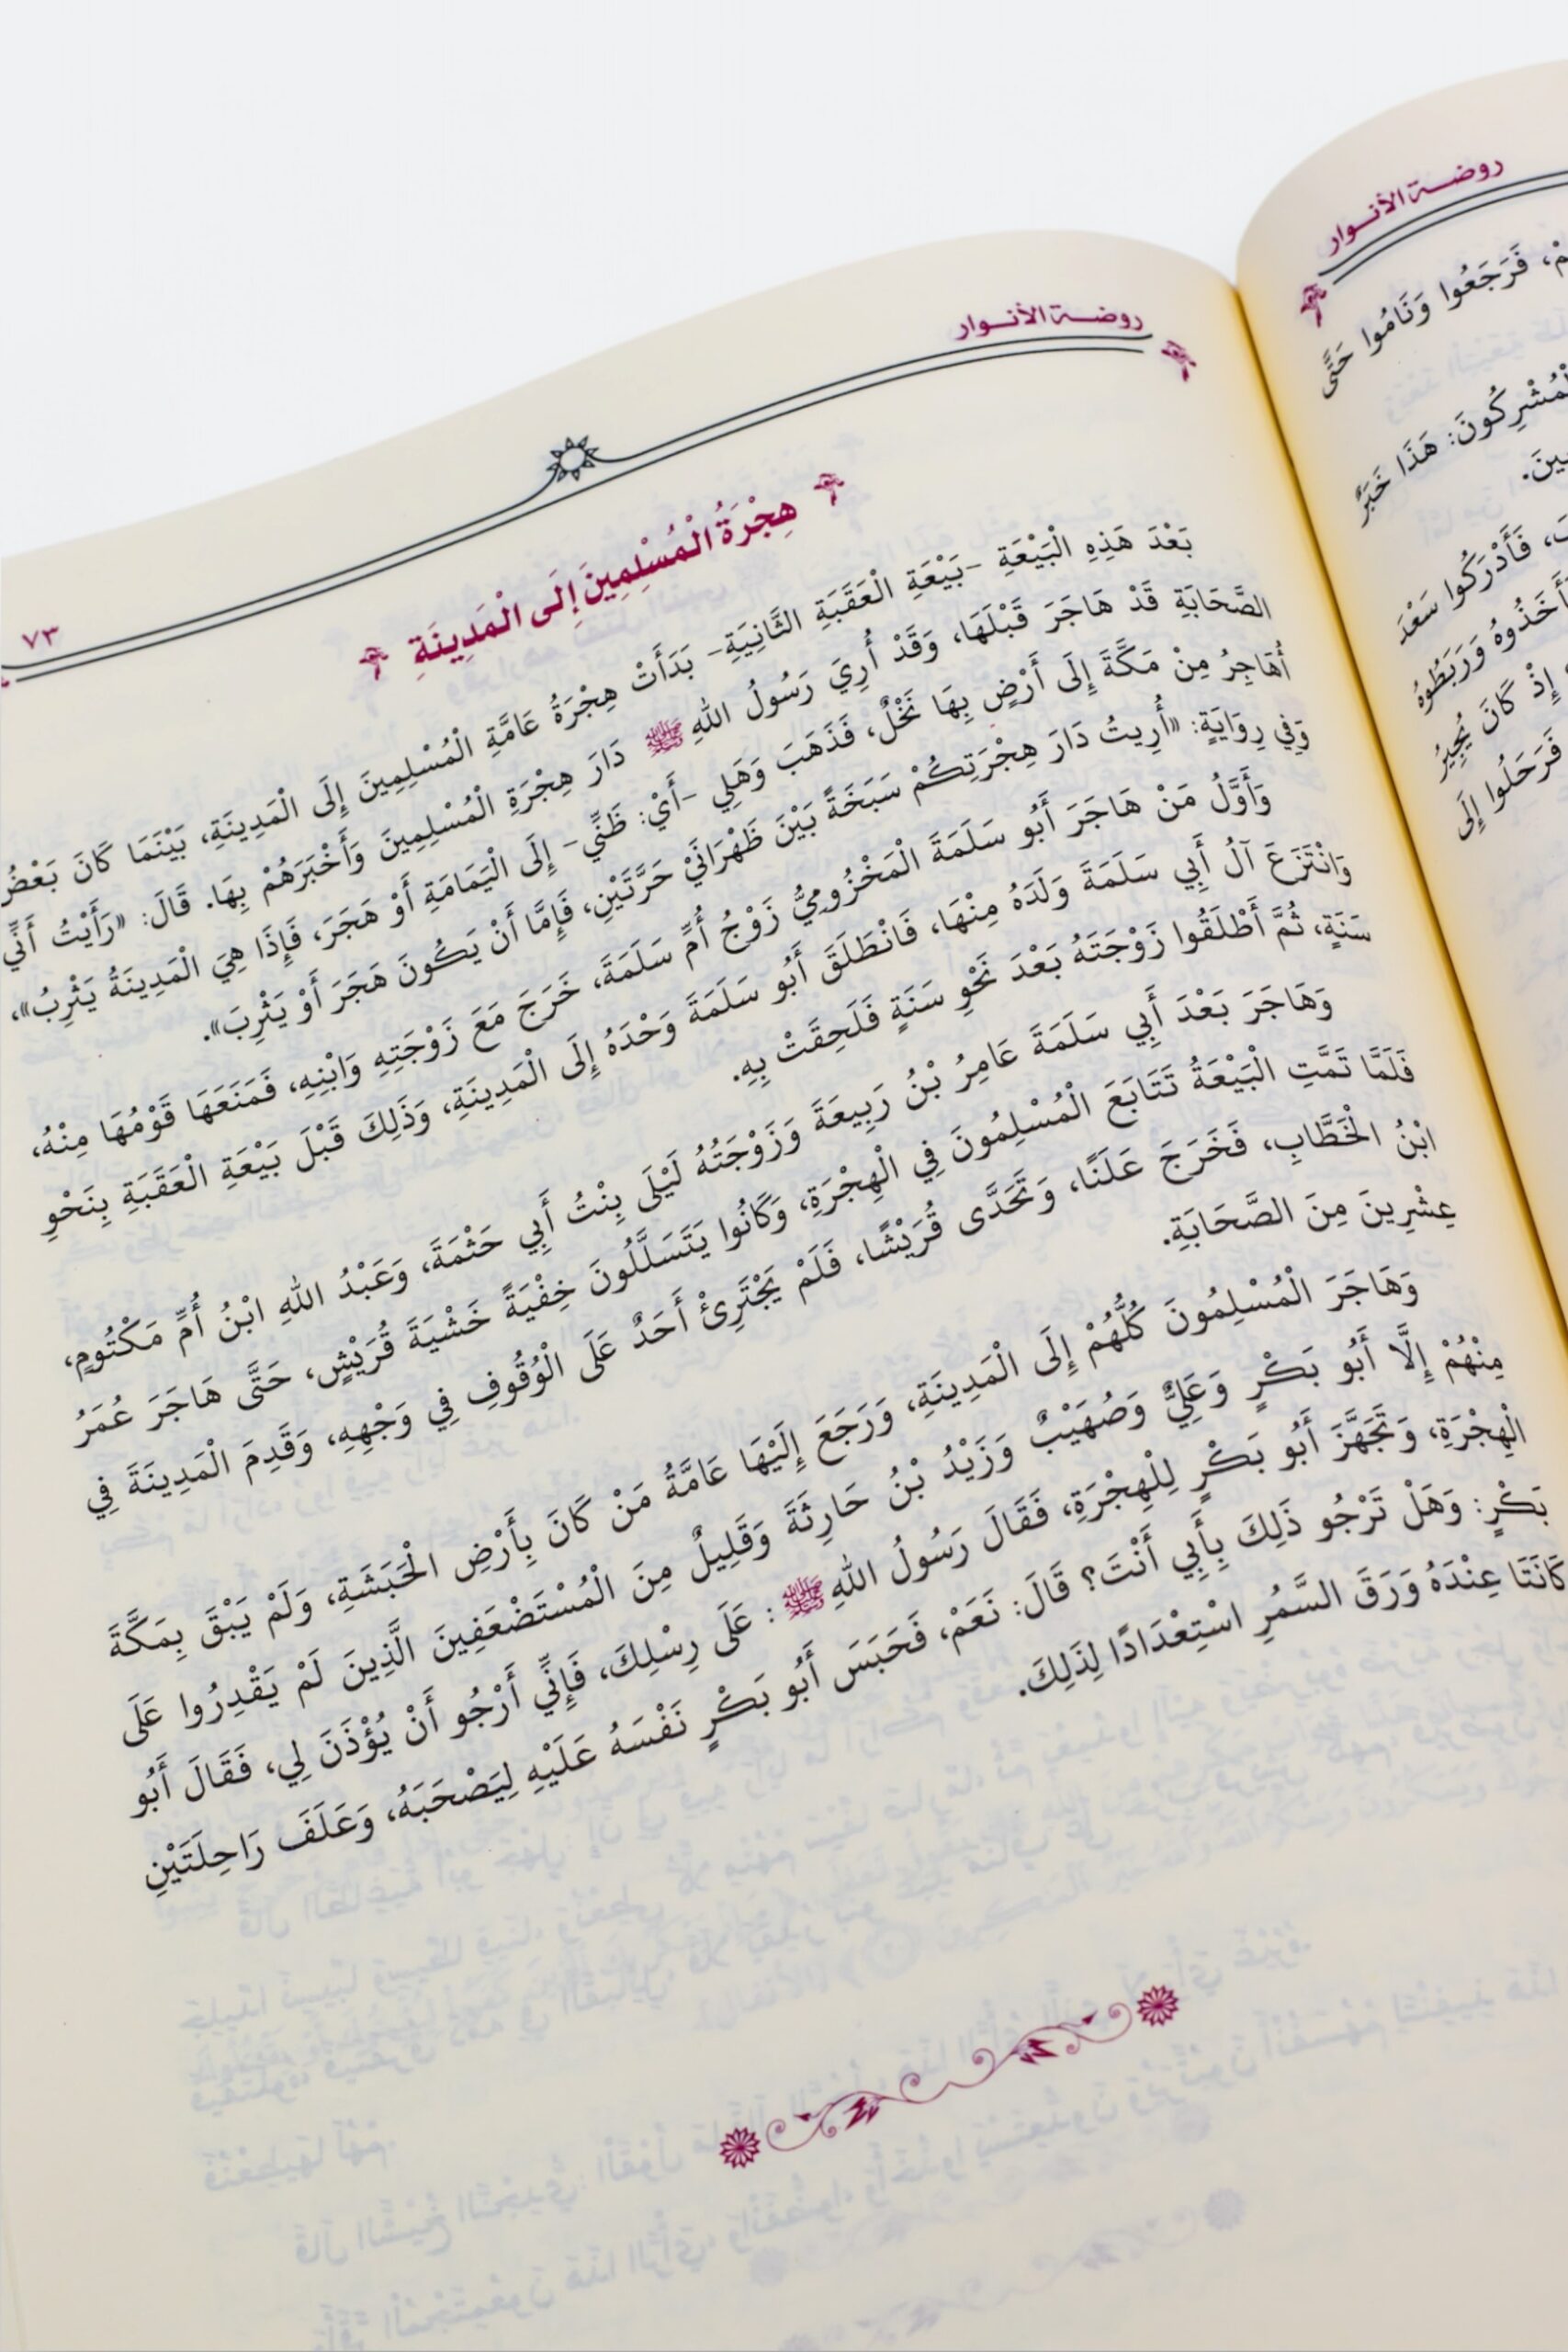 روضة الأنوار
مْ، فَرَجَعُوا وَنَامُوا حَتَّى
الْمُشْرِكُونَ: هَذَا خَبَرٌ
فَأَدْرَكُوا سَعْدَ
وَرَبَطُوهُ
إِذْ كَانَ يُجِيرُ
فَرَحَلُوا إِلَى
روضة الأنوار
٧٣
هِجْرَةُ الْمُسْلِمِينَ إِلَى الْمَدِينَةِ
بَعْدَ هَذِهِ الْبَيْعَةِ -بَيْعَةِ الْعَقَبَةِ الثَّانِيَةِ- بَدَأَتْ هِجْرَةُ عَامَّةِ الْمُسْلِمِينَ إِلَى الْمَدِينَةِ، بَيْنَمَا كَانَ بَعْضُ
الصَّحَابَةِ قَدْ هَاجَرَ قَبْلَهَا، وَقَدْ أُرِيَ رَسُولُ اللهِ ﷺ دَارَ هِجْرَةِ الْمُسْلِمِينَ وَأَخْبَرَهُمْ بِهَا. قَالَ: «رَأَيْتُ أَنِّي
أُهَاجِرُ مِنْ مَكَّةَ إِلَى أَرْضٍ بِهَا نَخْلٌ، فَذَهَبَ وَهَلِي -أَيْ: ظَنِّي- إِلَى الْيَمَامَةِ أَوْ هَجَرَ، فَإِذَا هِيَ الْمَدِينَةُ يَثْرِبُ»،
وَفِي رِوَايَةٍ: «أُرِيتُ دَارَ هِجْرَتِكُمْ سَبَخَةً بَيْنَ ظَهْرَانَيْ حَرَّتَيْنِ، فَإِمَّا أَنْ يَكُونَ هَجَرَ أَوْ يَثْرِبَ».
وَأَوَّلُ مَنْ هَاجَرَ أَبُو سَلَمَةَ الْمَخْزُومِيُّ زَوْجُ أُمِّ سَلَمَةَ، خَرَجَ مَعَ زَوْجَتِهِ وَابْنِهِ، فَمَنَعَهَا قَوْمُهَا مِنْهُ،
وَانْتَزَعَ آلُ أَبِي سَلَمَةَ وَلَدَهُ مِنْهَا، فَانْطَلَقَ أَبُو سَلَمَةَ وَحْدَهُ إِلَى الْمَدِينَةِ، وَذَلِكَ قَبْلَ بَيْعَةِ الْعَقَبَةِ بِنَحْوِ
سَنَةٍ، ثُمَّ أَطْلَقُوا زَوْجَتَهُ بَعْدَ نَحْوِ سَنَةٍ فَلَحِقَتْ بِهِ.
وَهَاجَرَ بَعْدَ أَبِي سَلَمَةَ عَامِرُ بْنُ رَبِيعَةَ وَزَوْجَتُهُ لَيْلَى بِنْتُ أَبِي حَثْمَةَ، وَعَبْدُ اللهِ ابْنُ أُمِّ مَكْتُومٍ،
فَلَمَّا تَمَّتِ الْبَيْعَةُ تَتَابَعَ الْمُسْلِمُونَ فِي الْهِجْرَةِ، وَكَانُوا يَتَسَلَّلُونَ خِفْيَةً خَشْيَةَ قُرَيْشٍ، حَتَّى هَاجَرَ عُمَرُ
ابْنُ الْخَطَّابِ، فَخَرَجَ عَلَنًا، وَتَحَدَّى قُرَيْشًا، فَلَمْ يَجْتَرِئْ أَحَدٌ عَلَى الْوُقُوفِ فِي وَجْهِهِ، وَقَدِمَ الْمَدِينَةَ فِي
عِشْرِينَ مِنَ الصَّحَابَةِ.
وَهَاجَرَ الْمُسْلِمُونَ كُلُّهُمْ إِلَى الْمَدِينَةِ، وَرَجَعَ إِلَيْهَا عَامَّةُ مَنْ كَانَ بِأَرْضِ الْحَبَشَةِ، وَلَمْ يَبْقَ بِمَكَّةَ
مِنْهُمْ إِلَّا أَبُو بَكْرٍ وَعَلِيٌّ وَصُهَيْبٌ وَزَيْدُ بْنُ حَارِثَةَ وَقَلِيلٌ مِنَ الْمُسْتَضْعَفِينَ الَّذِينَ لَمْ يَقْدِرُوا عَلَى
الْهِجْرَةِ، وَتَجَهَّزَ أَبُو بَكْرٍ لِلْهِجْرَةِ، فَقَالَ رَسُولُ اللهِ ﷺ: عَلَى رِسْلِكَ، فَإِنِّي أَرْجُو أَنْ يُؤْذَنَ لِي، فَقَالَ أَبُو
بَكْرٍ: وَهَلْ تَرْجُو ذَلِكَ بِأَبِي أَنْتَ؟ قَالَ: نَعَمْ، فَحَبَسَ أَبُو بَكْرٍ نَفْسَهُ عَلَيْهِ لِيَصْحَبَهُ، وَعَلَفَ رَاحِلَتَيْنِ
كَانَتَا عِنْدَهُ وَرَقَ السَّمُرِ اسْتِعْدَادًا لِذَلِكَ.